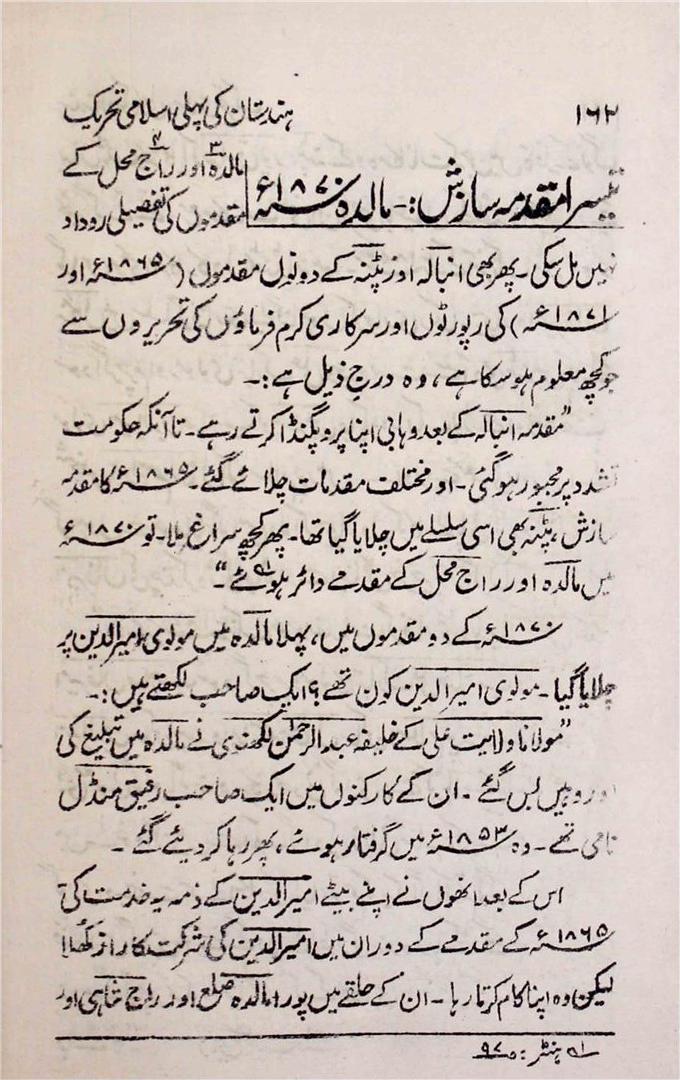 ۱۶۲
ہندستان کی پہلی اسلامی تحریک
تیسرا مقدمہ سازش :- مالدہ ۱۸۷۰ء
مالدہ ۳ اور راج محل ۴ کے
مقدموں کی تفصیلی روداد
نہیں مل سکی۔ پھر بھی انبالہ اور پٹنہ کے دونوں مقدموں (۱۸۶۵ء اور
۱۸۷۱ء) کی رپورٹوں اور سرکاری کرم فرماؤں کی تحریروں سے
جو کچھ معلوم ہو سکا ہے، وہ درج ذیل ہے:-
"مقدمہ انبالہ کے بعد وہابی اپنا پروپگنڈا کرتے رہے۔ تا آنکہ حکومت
تشدد پر مجبور ہو گئی۔ اور مختلف مقدمات چلائے گئے۔ ۱۸۶۵ء کا مقدمہ
سازش، پٹنہ بھی اسی سلسلے میں چلایا گیا تھا۔ پھر کچھ سراغ ملا۔ تو ۱۸۷۰ء
میں مالدہ اور راج محل کے مقدمے دائر ہوئے ۱؎"۔
۱۸۷۰ء کے دو مقدموں میں، پہلا مالدہ میں مولوی امیر الدین پر
چلایا گیا۔ مولوی امیر الدین کون تھے؟ ایک صاحب لکھتے ہیں:-
"مولانا ولایت علی کے خلیفہ عبد الرحمٰن لکھنوی نے مالدہ میں تبلیغ کی
اور وہیں بس گئے۔ ان کے کارکنوں میں ایک صاحب رفیق منڈل
نامی تھے۔ وہ ۱۸۵۳ء میں گرفتار ہوئے، پھر رہا کر دیئے گئے۔
اس کے بعد انھوں نے اپنے بیٹے امیر الدین کے ذمہ یہ خدمت کی
۱۸۶۵ء کے مقدمے کے دوران میں امیر الدین کی شرکت کا راز کھلا
لیکن وہ اپنا کام کرتا رہا۔ ان کے حلقے میں پورا مالدہ ضلع اور راج شاہی اور
۱؎ ہنٹر: ص ۹۷